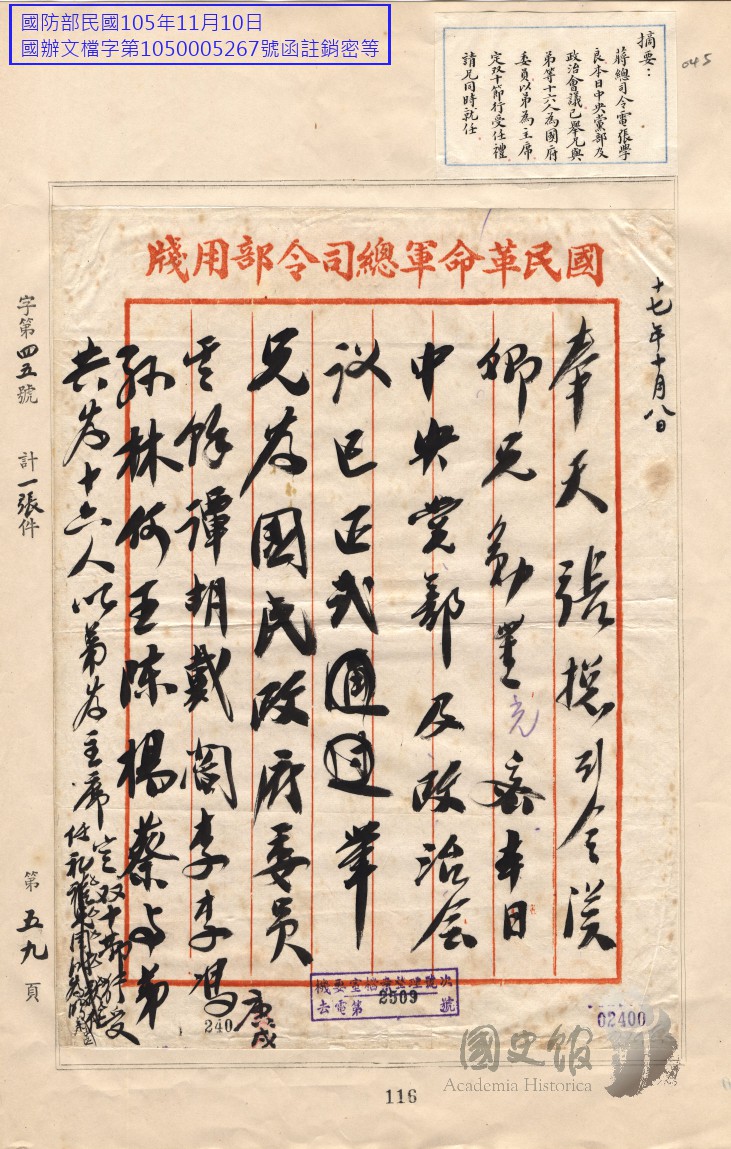 國防部民國105年11月10日
國辦文檔字第1050005267號函註銷密等
摘要：
蔣總司令電張學
良本日中央黨部及
政治會議已舉兄與
弟等十六人為國府
委員以弟為主席
定双十節行受任禮
請兄同時就任
045
國民革命軍總司令部用牋
十七年十月八日
奉天張總司令漢
卿兄勛鑒密本日
中央党部及政治会
议已正式通過举
兄為國民政府委員
其餘譚胡戴閻李李馮
孫林何王陳楊蔡与弟
共為十六人以弟為主席
定双十節行受
任礼
庚戌
字第四五號 計一張件
第五九頁
機要室檔案整理號次
去電第2509號
02400
240
國史館
Academia Historica
116